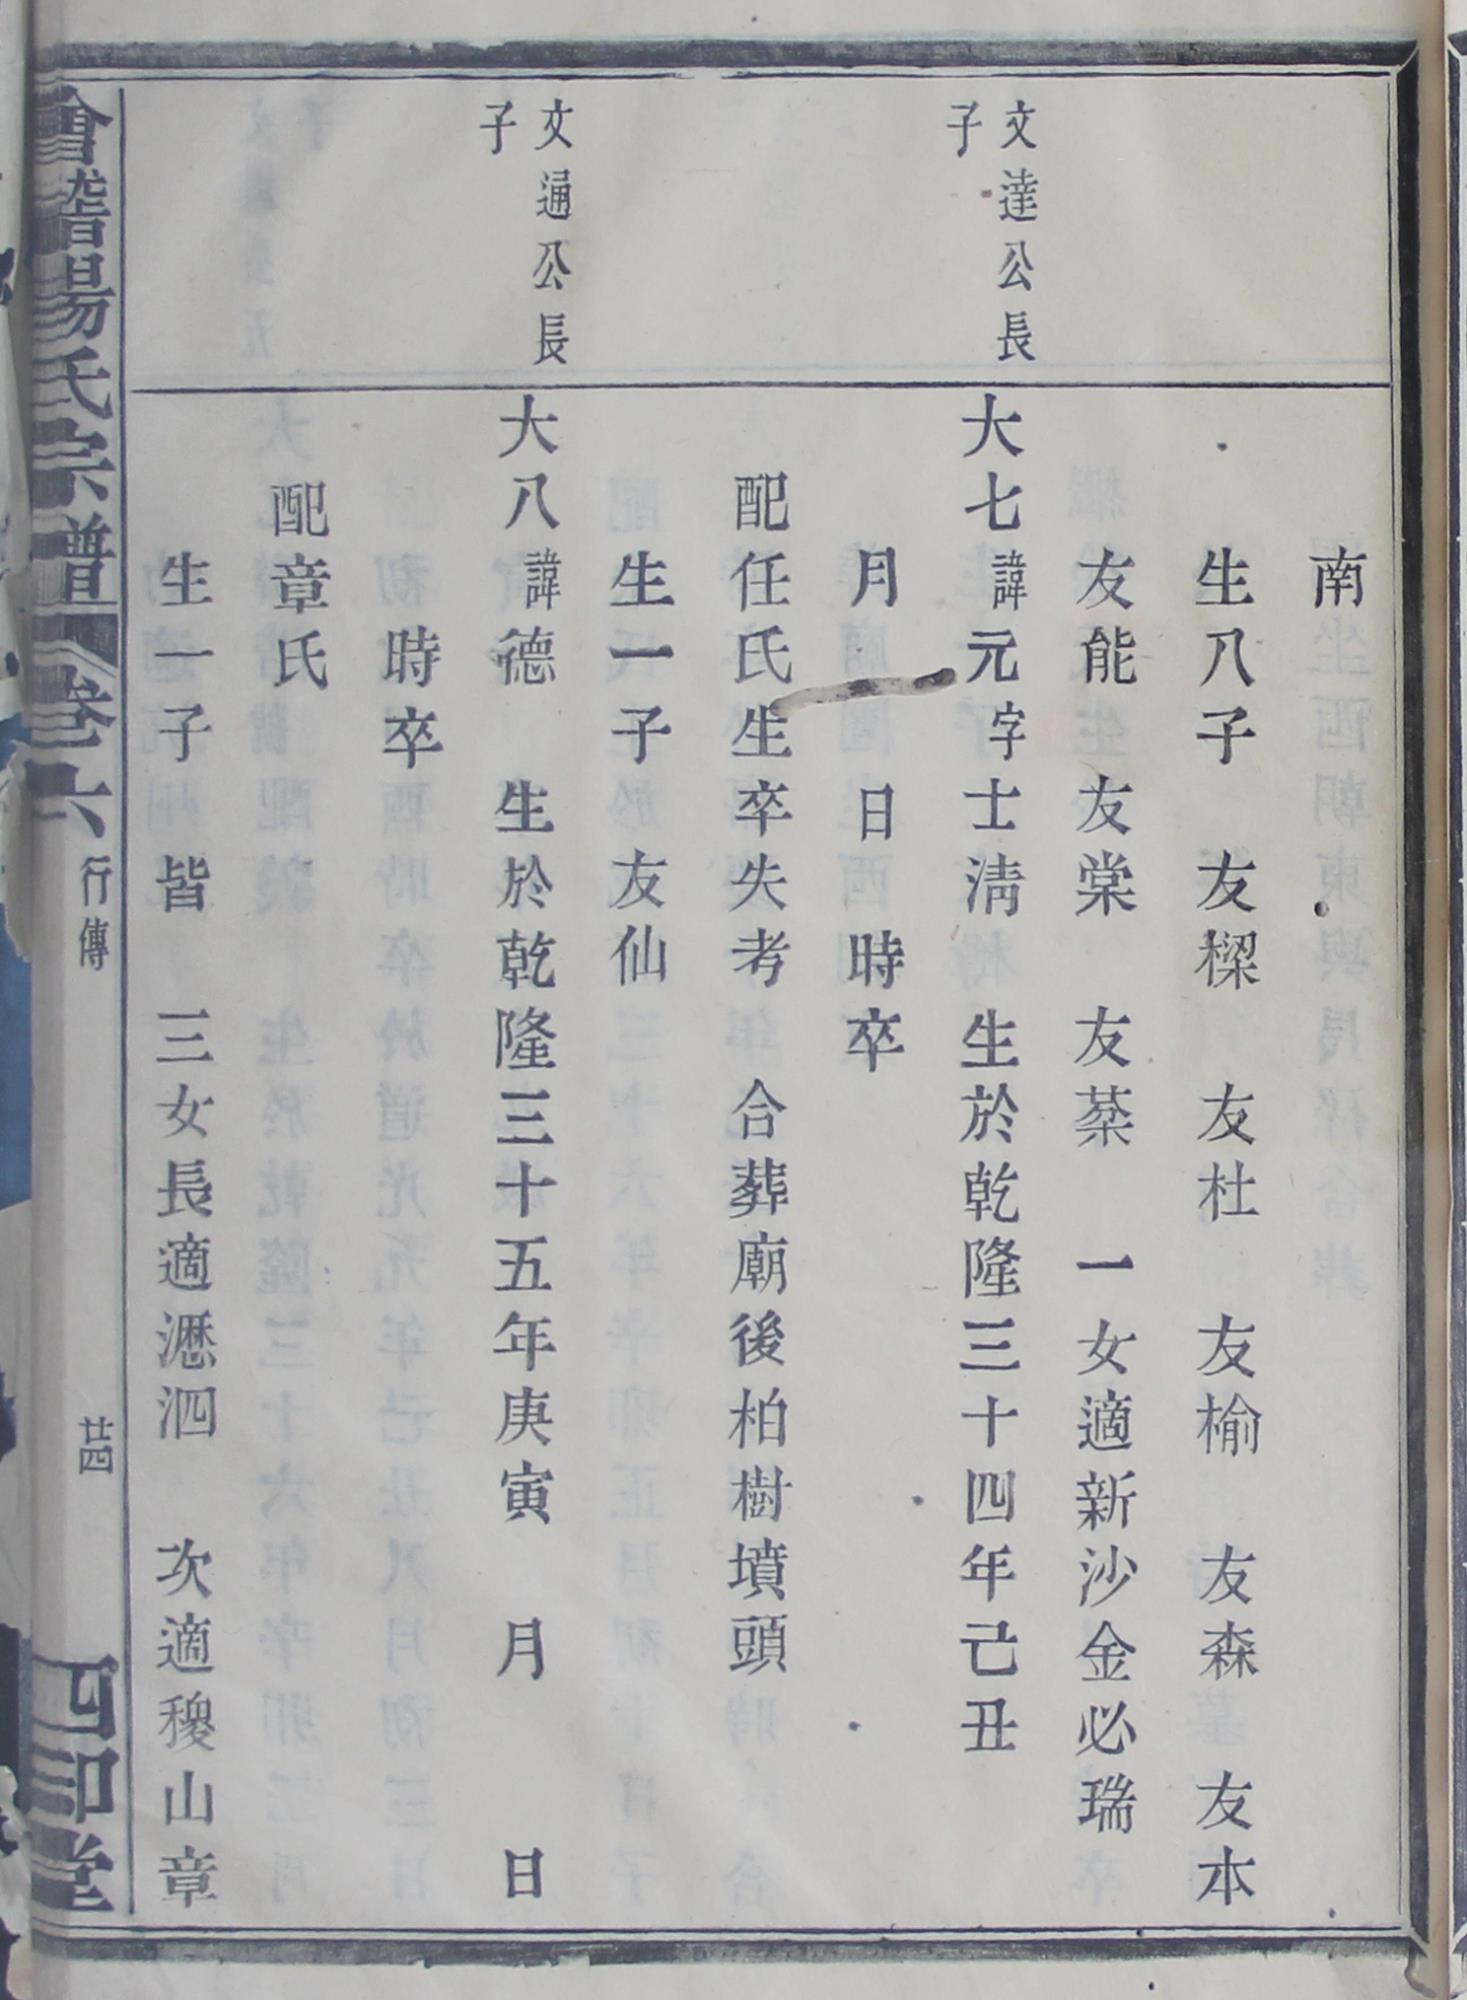 南
生八子　友樑　友杜　友榆　友森　友本
友能　友棠　友棻　一女適新沙金必瑞
文達公長
子
大七諱元字士淸　生於乾隆三十四年己丑
月　日　時卒
配任氏生卒失考　合葬廟後柏樹墳頭
生一子　友仙
文通公長
子
大八諱德　生於乾隆三十五年庚寅　月　日
時卒
配章氏
生一子　皆　三女長適瀝泗　次適稷山章
會稽楊氏宗譜　卷六　行傳　廿四　四印堂